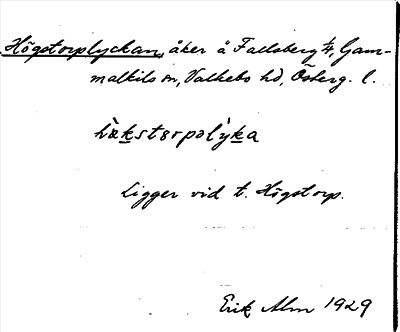 Högstorplyckan, åker å Fallsberg 1/4, Gam-
malkils sn, Valkebo hd, Österg. l.
hö̀kstɜrpəlỳka
Ligger vid t. Högstorp.
Erik Alm 1929